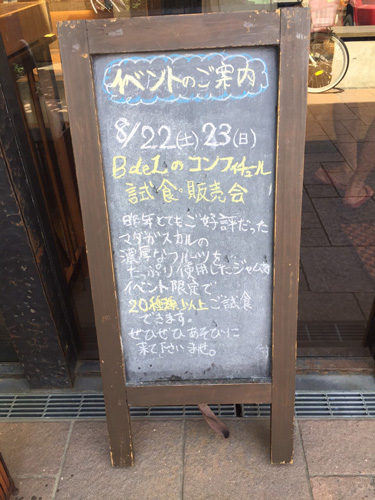 イベントのご案内
8/22(土) 23(日)
BdeLのコンフィチュール
試食・販売会
昨年とてもご好評だった
マダガスカルの
濃厚なフルーツを
たっぷり使用したジャムが
イベント限定で
20種類以上ご試食
できます。
ぜひぜひあそびに
来て下さいませ。